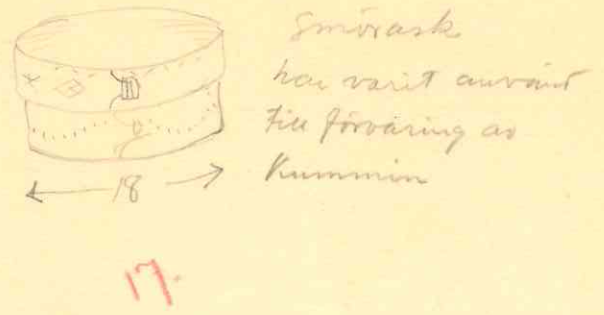 Smörask
har varit använt
till förvaring av
Kummin
18
17.